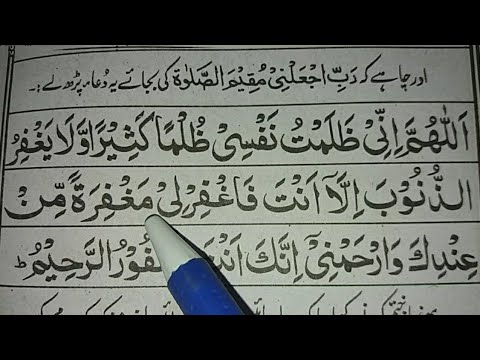 اور چاہے کہ رَبِّ اجْعَلْنِیْ مُقِیْمَ الصَّلٰوۃِ کی بجائے یہ دُعا پڑھ لے :۔
اَللّٰهُمَّ اِنِّیْ ظَلَمْتُ نَفْسِیْ ظُلْمًا كَثِیْرًا وَّلَا یَغْفِرُ
الذُّنُوْبَ اِلَّا اَنْتَ فَاغْفِرْ لِیْ مَغْفِرَةً مِّنْ
عِنْدِكَ وَارْحَمْنِیْ اِنَّكَ اَنْتَ فُوْرُ الرَّحِیْمُ ط